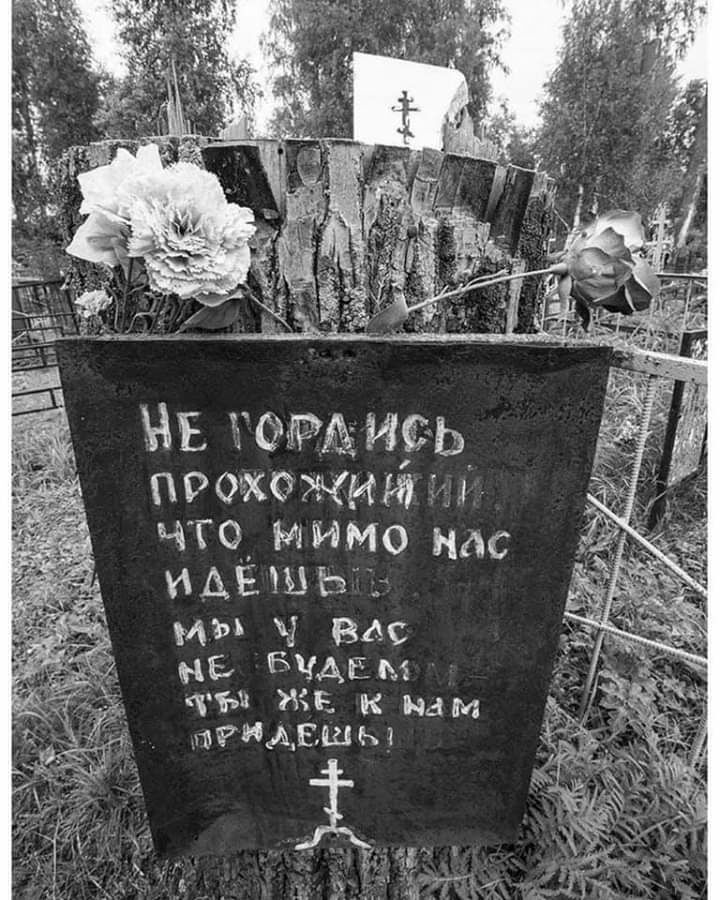 НЕ ГОРДИСЬ
ПРОХОЖИЙ
ЧТО МИМО НАС
ИДЁШЬ
МЫ У ВАС
НЕ БУДЕМ
ТЫ ЖЕ К НАМ
ПРИДЕШЬ